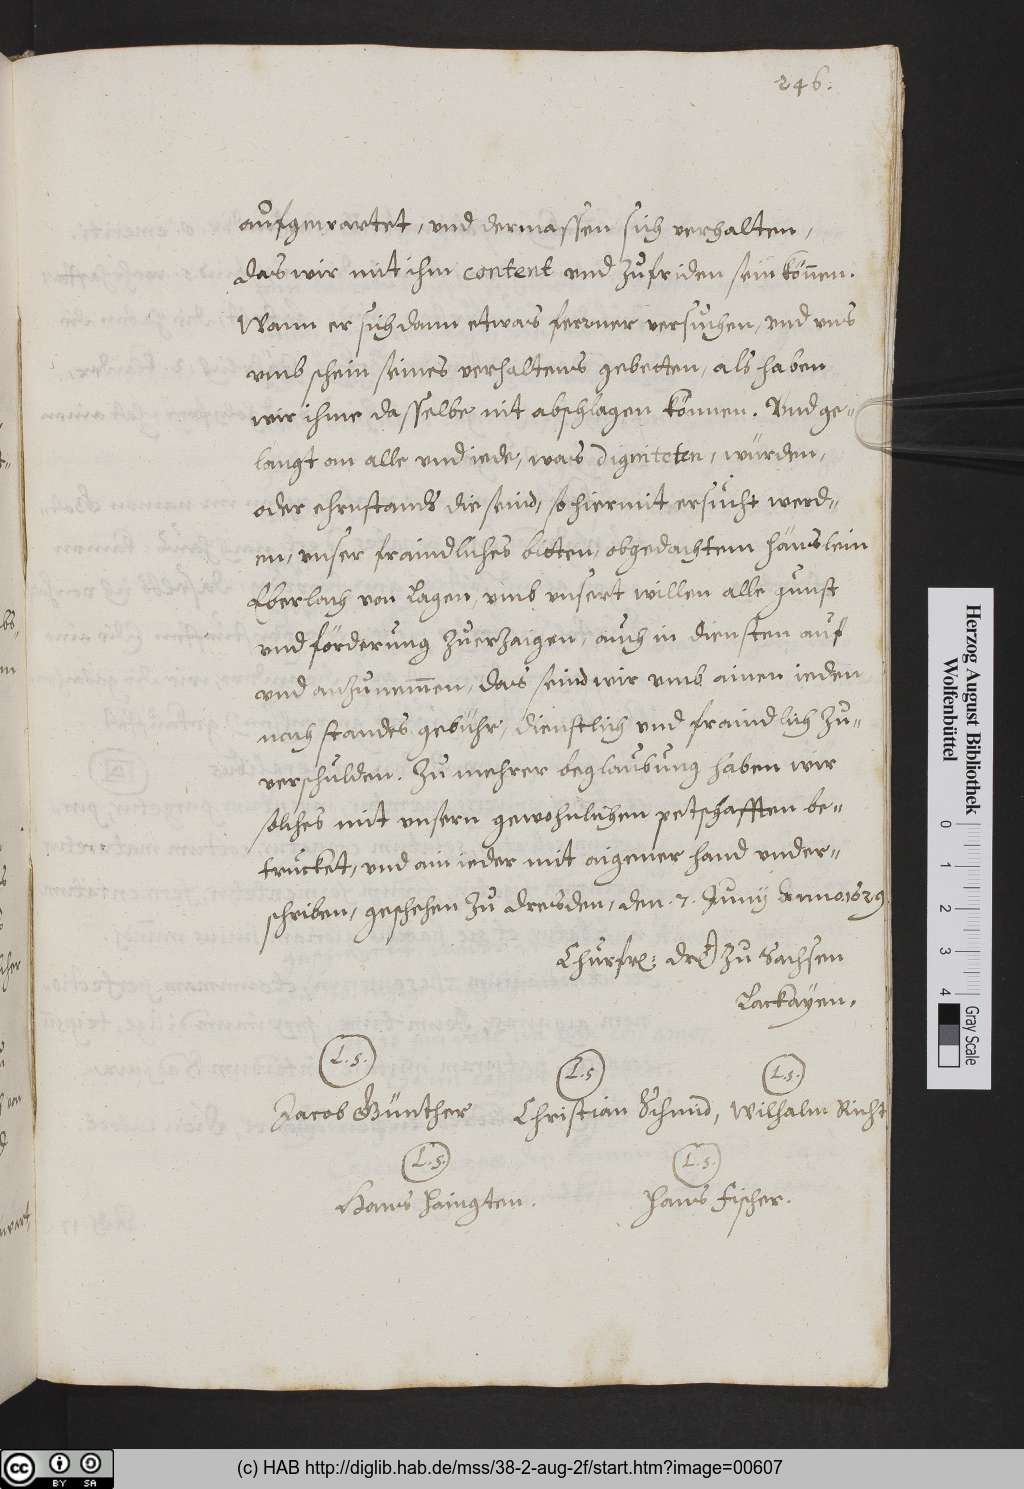 246.
aufgewartet, vnd dermassen sich verhalten,
das wir mit ihm content vnd zufriden sein können.
Wann er sich dann etwas ferrner versuchen, vnd vns
vmb schein seines verhaltens gebetten, als haben
wir ihme dasselbe nit abschlagen können. Vnd ge-
langt an alle vnd iede, was digniteten, würden,
oder ehrnstands die seind, so hiermit ersucht werd-
en, vnser fraindliches bitten, obgedachtem Hänslein
Eberlach von Lagen, vmb vnsert willen alle gunst
vnd förderung zuerzaigen, auch in diensten auf
vnd anzunemmen, das seind wir vmb ainen ieden
nach standes gebühr, dienstlich vnd fraindlich zu-
verschulden. Zu mehrer beglaubung haben wir
solches mit vnsern gewohnlichen petschafften be-
trucket, vnd ain ieder mit aigener hand vnder-
schriben, geschehen zu Dresden, den 7. Juny Anno 1629.
Churfr: Drl zu Sachsen
Lackayen.
L.S.
L.S
L.S.
Jacob Günther Christian Schmid, Wilhalm Richt
L.S.
L.S.
Hans Haingten. Hans Fischer.
Herzog August Bibliothek
Wolfenbüttel
0 1 2 3 4
Gray Scale
cc BY SA
(c) HAB http://diglib.hab.de/mss/38-2-aug-2f/start.htm?image=00607